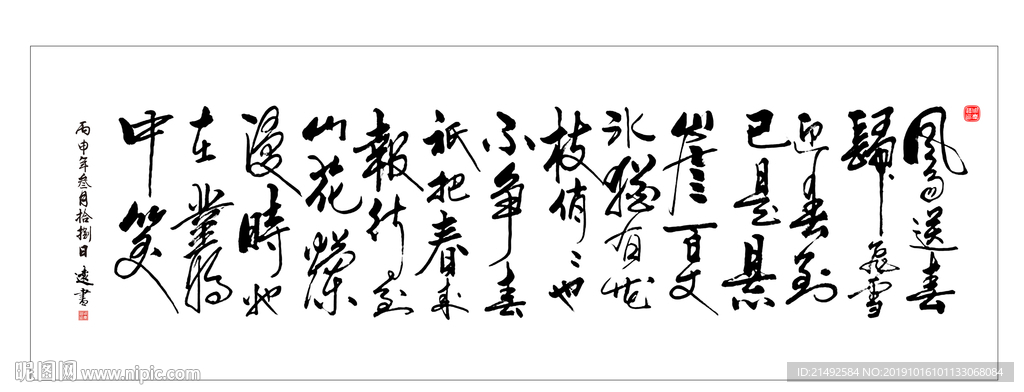 風雨送春
歸飛雪
迎春到
已是懸
崖百丈
冰猶有花
枝俏〻也
不爭春
祇把春来
報待到
山花爛
漫時她
在叢
中笑
丙申年叁月拾捌日 遠書
昵图网 www.nipic.com
ID:21492584 NO:20191016101133068084